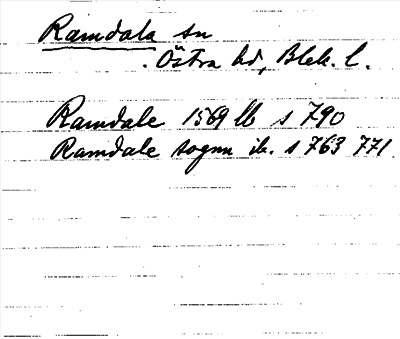 Ramdala sn
Östra hd, Blek. l.
Ramdale 1569 lb s 790
Ramdale sognn ib. s 763 771